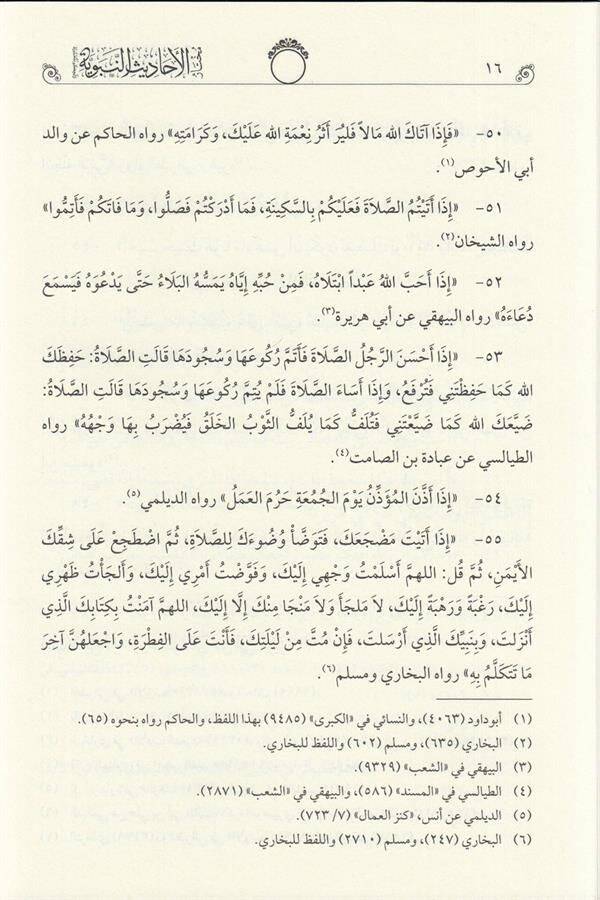 ١٦
مختار الأحاديث النبوية
٥٠- «فَإِذَا آتَاكَ الله مَالاً فَلْيُرَ أَثَرُ نِعْمَةِ الله عَلَيْكَ، وَكَرَامَتِهِ» رواه الحاكم عن والد
أبي الأحوص(١).
٥١- «إِذَا أَتَيْتُمُ الصَّلَاةَ فَعَلَيْكُمْ بِالسَّكِينَةِ، فَمَا أَدْرَكْتُمْ فَصَلُّوا، وَمَا فَاتَكُمْ فَأَتِمُّوا»
رواه الشيخان(٢).
٥٢- «إِذَا أَحَبَّ اللهُ عَبْداً ابْتَلَاهُ، فَمِنْ حُبِّهِ إِيَّاهُ يَمَسُّهُ البَلَاءُ حَتَّى يَدْعُوَهُ فَيَسْمَعَ
دُعَاءَهُ» رواه البيهقي عن أبي هريرة(٣).
٥٣- «إِذَا أَحْسَنَ الرَّجُلُ الصَّلَاةَ فَأَتَمَّ رُكُوعَهَا وَسُجُودَهَا قَالَتِ الصَّلَاةُ: حَفِظَكَ
الله كَمَا حَفِظْتَنِي فَتُرْفَعُ، وَإِذَا أَسَاءَ الصَّلَاةَ فَلَمْ يُتِمَّ رُكُوعَهَا وَسُجُودَهَا قَالَتِ الصَّلَاةُ:
ضَيَّعَكَ الله كَمَا ضَيَّعْتَنِي فَتُلَفُّ كَمَا يُلَفُّ الثَّوْبُ الخَلَقُ فَيُضْرَبُ بِهَا وَجْهُهُ» رواه
الطيالسي عن عبادة بن الصامت(٤).
٥٤- «إِذَا أَذَّنَ المُؤَذِّنُ يَوْمَ الجُمُعَةِ حَرُمَ العَمَلُ» رواه الديلمي(٥).
٥٥- «إِذَا أَتَيْتَ مَضْجَعَكَ، فَتَوَضَّأْ وُضُوءَكَ لِلصَّلَاةِ، ثُمَّ اضْطَجِعْ عَلَى شِقِّكَ
الأَيْمَنِ، ثُمَّ قُل: اللهمَّ أَسْلَمْتُ وَجْهِي إِلَيْكَ، وَفَوَّضْتُ أَمْرِي إِلَيْكَ، وَأَلْجَأْتُ ظَهْرِي
إِلَيْكَ، رَغْبَةً وَرَهْبَةً إِلَيْكَ، لاَ مَلجَأَ وَلاَ مَنْجَا مِنْكَ إِلَّا إِلَيْكَ، اللهمَّ آمَنْتُ بِكِتَابِكَ الَّذِي
أَنْزَلتَ، وَبِنَبِيِّكَ الَّذِي أَرْسَلتَ، فَإِنْ مُتَّ مِنْ لَيْلَتِكَ، فَأَنْتَ عَلَى الفِطْرَةِ، وَاجْعَلهُنَّ آخِرَ
مَا تَتَكَلَّمُ بِهِ» رواه البخاري ومسلم(٦).
(١) أبوداود (٤٠٦٣)، والنسائي في «الكبرى» (٩٤٨٥) بهذا اللفظ، والحاكم رواه بنحوه (٦٥).
(٢) البخاري (٦٣٥)، ومسلم (٦٠٢) واللفظ للبخاري.
(٣) البيهقي في «الشعب» (٩٣٢٩).
(٤) الطيالسي في «المسند» (٥٨٦)، والبيهقي في «الشعب» (٢٨٧١).
(٥) الديلمي عن أنس، «كنز العمال» (٧/ ٧٢٣).
(٦) البخاري (٢٤٧)، ومسلم (٢٧١٠) واللفظ للبخاري.